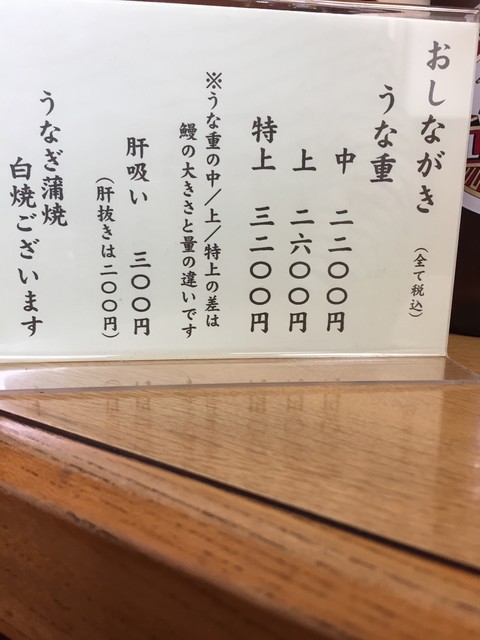 おしながき
(全て税込)
うな重
中 二二〇〇円
上 二六〇〇円
特上 三二〇〇円
※うな重の中/上/特上の差は
鰻の大きさと量の違いです
肝吸い 三〇〇円
(肝抜きは二〇〇円)
うなぎ蒲焼
白焼ございます